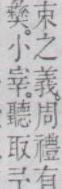 束之義。周禮有
小宰聽取予